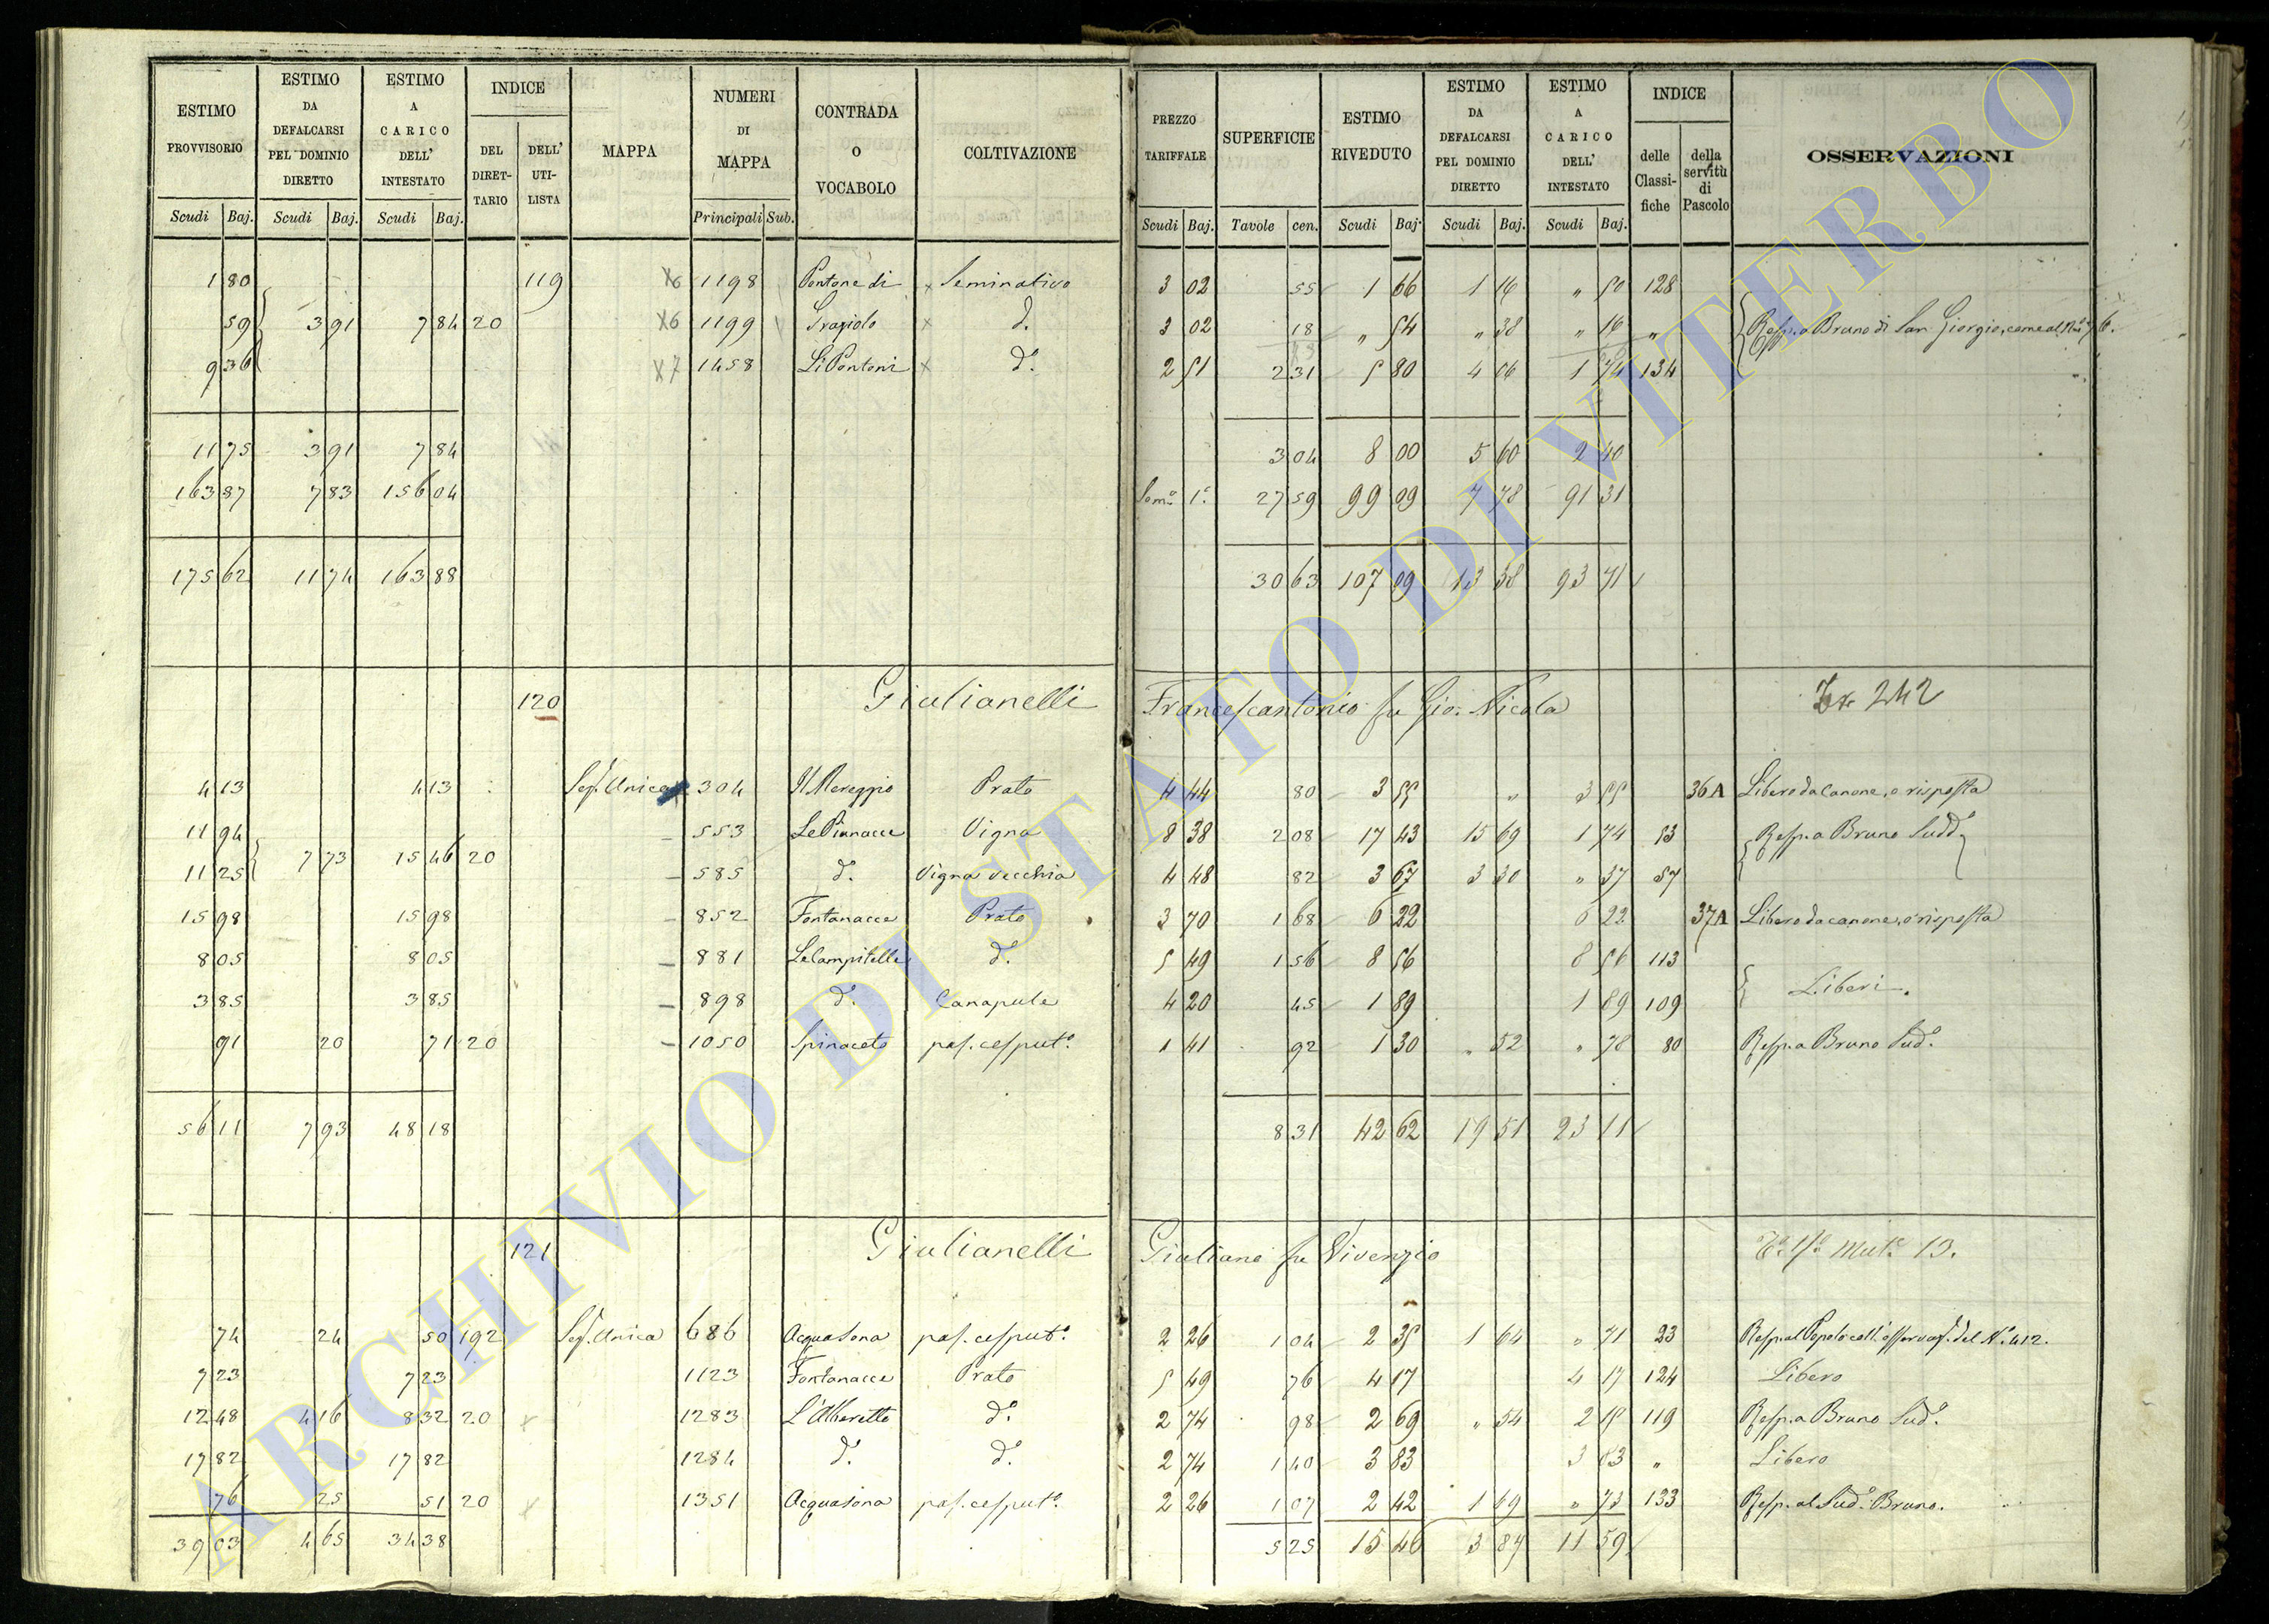 ESTIMO PROVVISORIO | ESTIMO DA DEFALCARSI PEL DOMINIO DIRETTO | ESTIMO A CARICO DELL' INTESTATO | INDICE | MAPPA | NUMERI DI MAPPA | CONTRADA O VOCABOLO | COLTIVAZIONE | PREZZO TARIFFALE | SUPERFICIE | ESTIMO RIVEDUTO | ESTIMO DA DEFALCARSI PEL DOMINIO DIRETTO | ESTIMO A CARICO DELL' INTESTATO | INDICE | OSSERVAZIONI
DEL DIRETTARIO | DELL' UTILISTA | delle Classifiche | della servitù di Pascolo
Scudi Baj. | Scudi Baj. | Scudi Baj. | Principali Sub. | Scudi Baj. | Tavole cen. | Scudi Baj. | Scudi Baj. | Scudi Baj.
1 80 | 119 | X6 | 1198 | Pontone di | Seminativo | 3 02 | 55 | 1 66 | 1 16 | " 50 | 128
59 | 3 91 | 7 84 | 20 | X6 | 1199 | Graziolo | d.° | 3 02 | 18 | " 54 | " 38 | " 16 | " | Resp. a Bruno di San Giorgio, come al N.°
9 36 | X7 | 1458 | Li Pontoni | d.° | 2 51 | 2 31 | 5 80 | 4 06 | 1 74 | 134
11 75 | 3 91 | 7 84 | 3 04 | 8 00 | 5 60 | 2 40
163 87 | 7 83 | 156 04 | Som.a 1.a | 27 59 | 99 09 | 7 78 | 91 31
175 62 | 11 74 | 163 88 | 30 63 | 107 09 | 13 38 | 93 71
120 | Giulianelli Francescantonio fu Gio: Nicola | 242
4 13 | 4 13 | Sez. Unica | 304 | Il Mereggio | Prato | 4 44 | 80 | 3 55 | " | 3 55 | 36A | Libero da canone, o risposta
11 94 | 553 | Le Pianacce | Vigna | 8 38 | 2 08 | 17 43 | 15 69 | 1 74 | 53 | Resp. a Bruno Sudd.°
7 73 | 15 46 | 20
11 25 | 585 | d.° | Vigna vecchia | 4 48 | 82 | 3 67 | 3 30 | " 37 | 57
15 98 | 15 98 | 852 | Fontanacce | Prato | 3 70 | 1 68 | 6 22 | 6 22 | 37A | Libero da canone, o risposta
8 05 | 8 05 | 881 | Le Campitelle | d.° | 5 49 | 1 56 | 8 56 | 8 56 | 113
3 85 | 3 85 | 898 | d.° | Canapule | 4 20 | 45 | 1 89 | 1 89 | 109 | Liberi.
91 | 20 | 71 | 20 | 1050 | Spinaceto | pas. cesput.° | 1 41 | 92 | 1 30 | " 52 | " 78 | 80 | Resp. a Bruno Sud.°
56 11 | 7 93 | 48 18 | 8 31 | 42 62 | 19 51 | 23 11
121 | Giulianelli Giuliano fu Vivenzio | Mut.e 13.
74 | 24 | 50 | 192 | Sez. Unica | 686 | Acquasona | pas. cesput.° | 2 26 | 1 04 | 2 35 | 1 64 | " 71 | 23 | Resp. al Popolo coll'osservaz. del N.° 412.
7 23 | 7 23 | 1123 | Fontanacce | Prato | 5 49 | 76 | 4 17 | 4 17 | 124 | Libero
12 48 | 4 16 | 8 32 | 20 | 1283 | L'Alberetto | d.° | 2 74 | 98 | 2 69 | " 54 | 2 15 | 119 | Resp. a Bruno Sud.°
17 82 | 17 82 | 1284 | d.° | d.° | 2 74 | 1 40 | 3 83 | 3 83 | " | Libero
76 | 25 | 51 | 20 | 1351 | Acquasona | pas. cesput.° | 2 26 | 1 07 | 2 42 | 1 69 | " 73 | 133 | Resp. al Sud.° Bruno.
39 03 | 4 65 | 34 38 | 5 25 | 15 46 | 3 87 | 11 59
ARCHIVIO DI STATO DI VITERBO